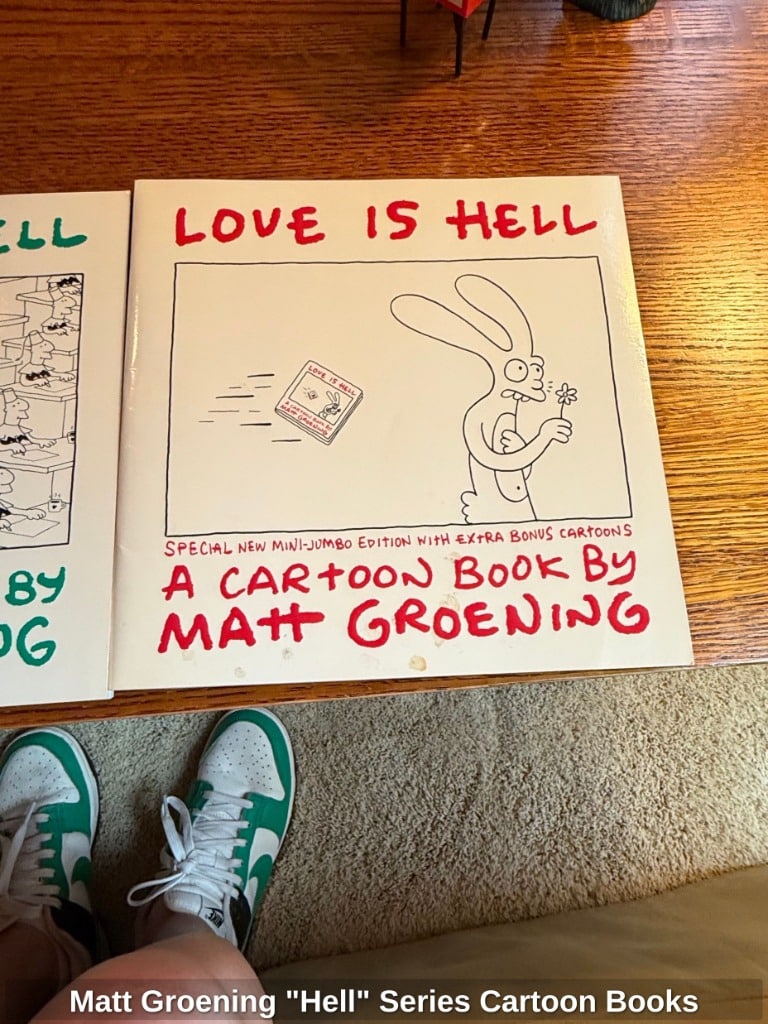 LOVE IS HELL
LOVE IS HELL
A CARTOON BOOK BY
MATT GROENING
SPECIAL NEW MINI-JUMBO EDITION WITH EXTRA BONUS CARTOONS
A CARTOON BOOK BY
MATT GROENING
ELL
BY
OG
NIKE
Matt Groening "Hell" Series Cartoon Books